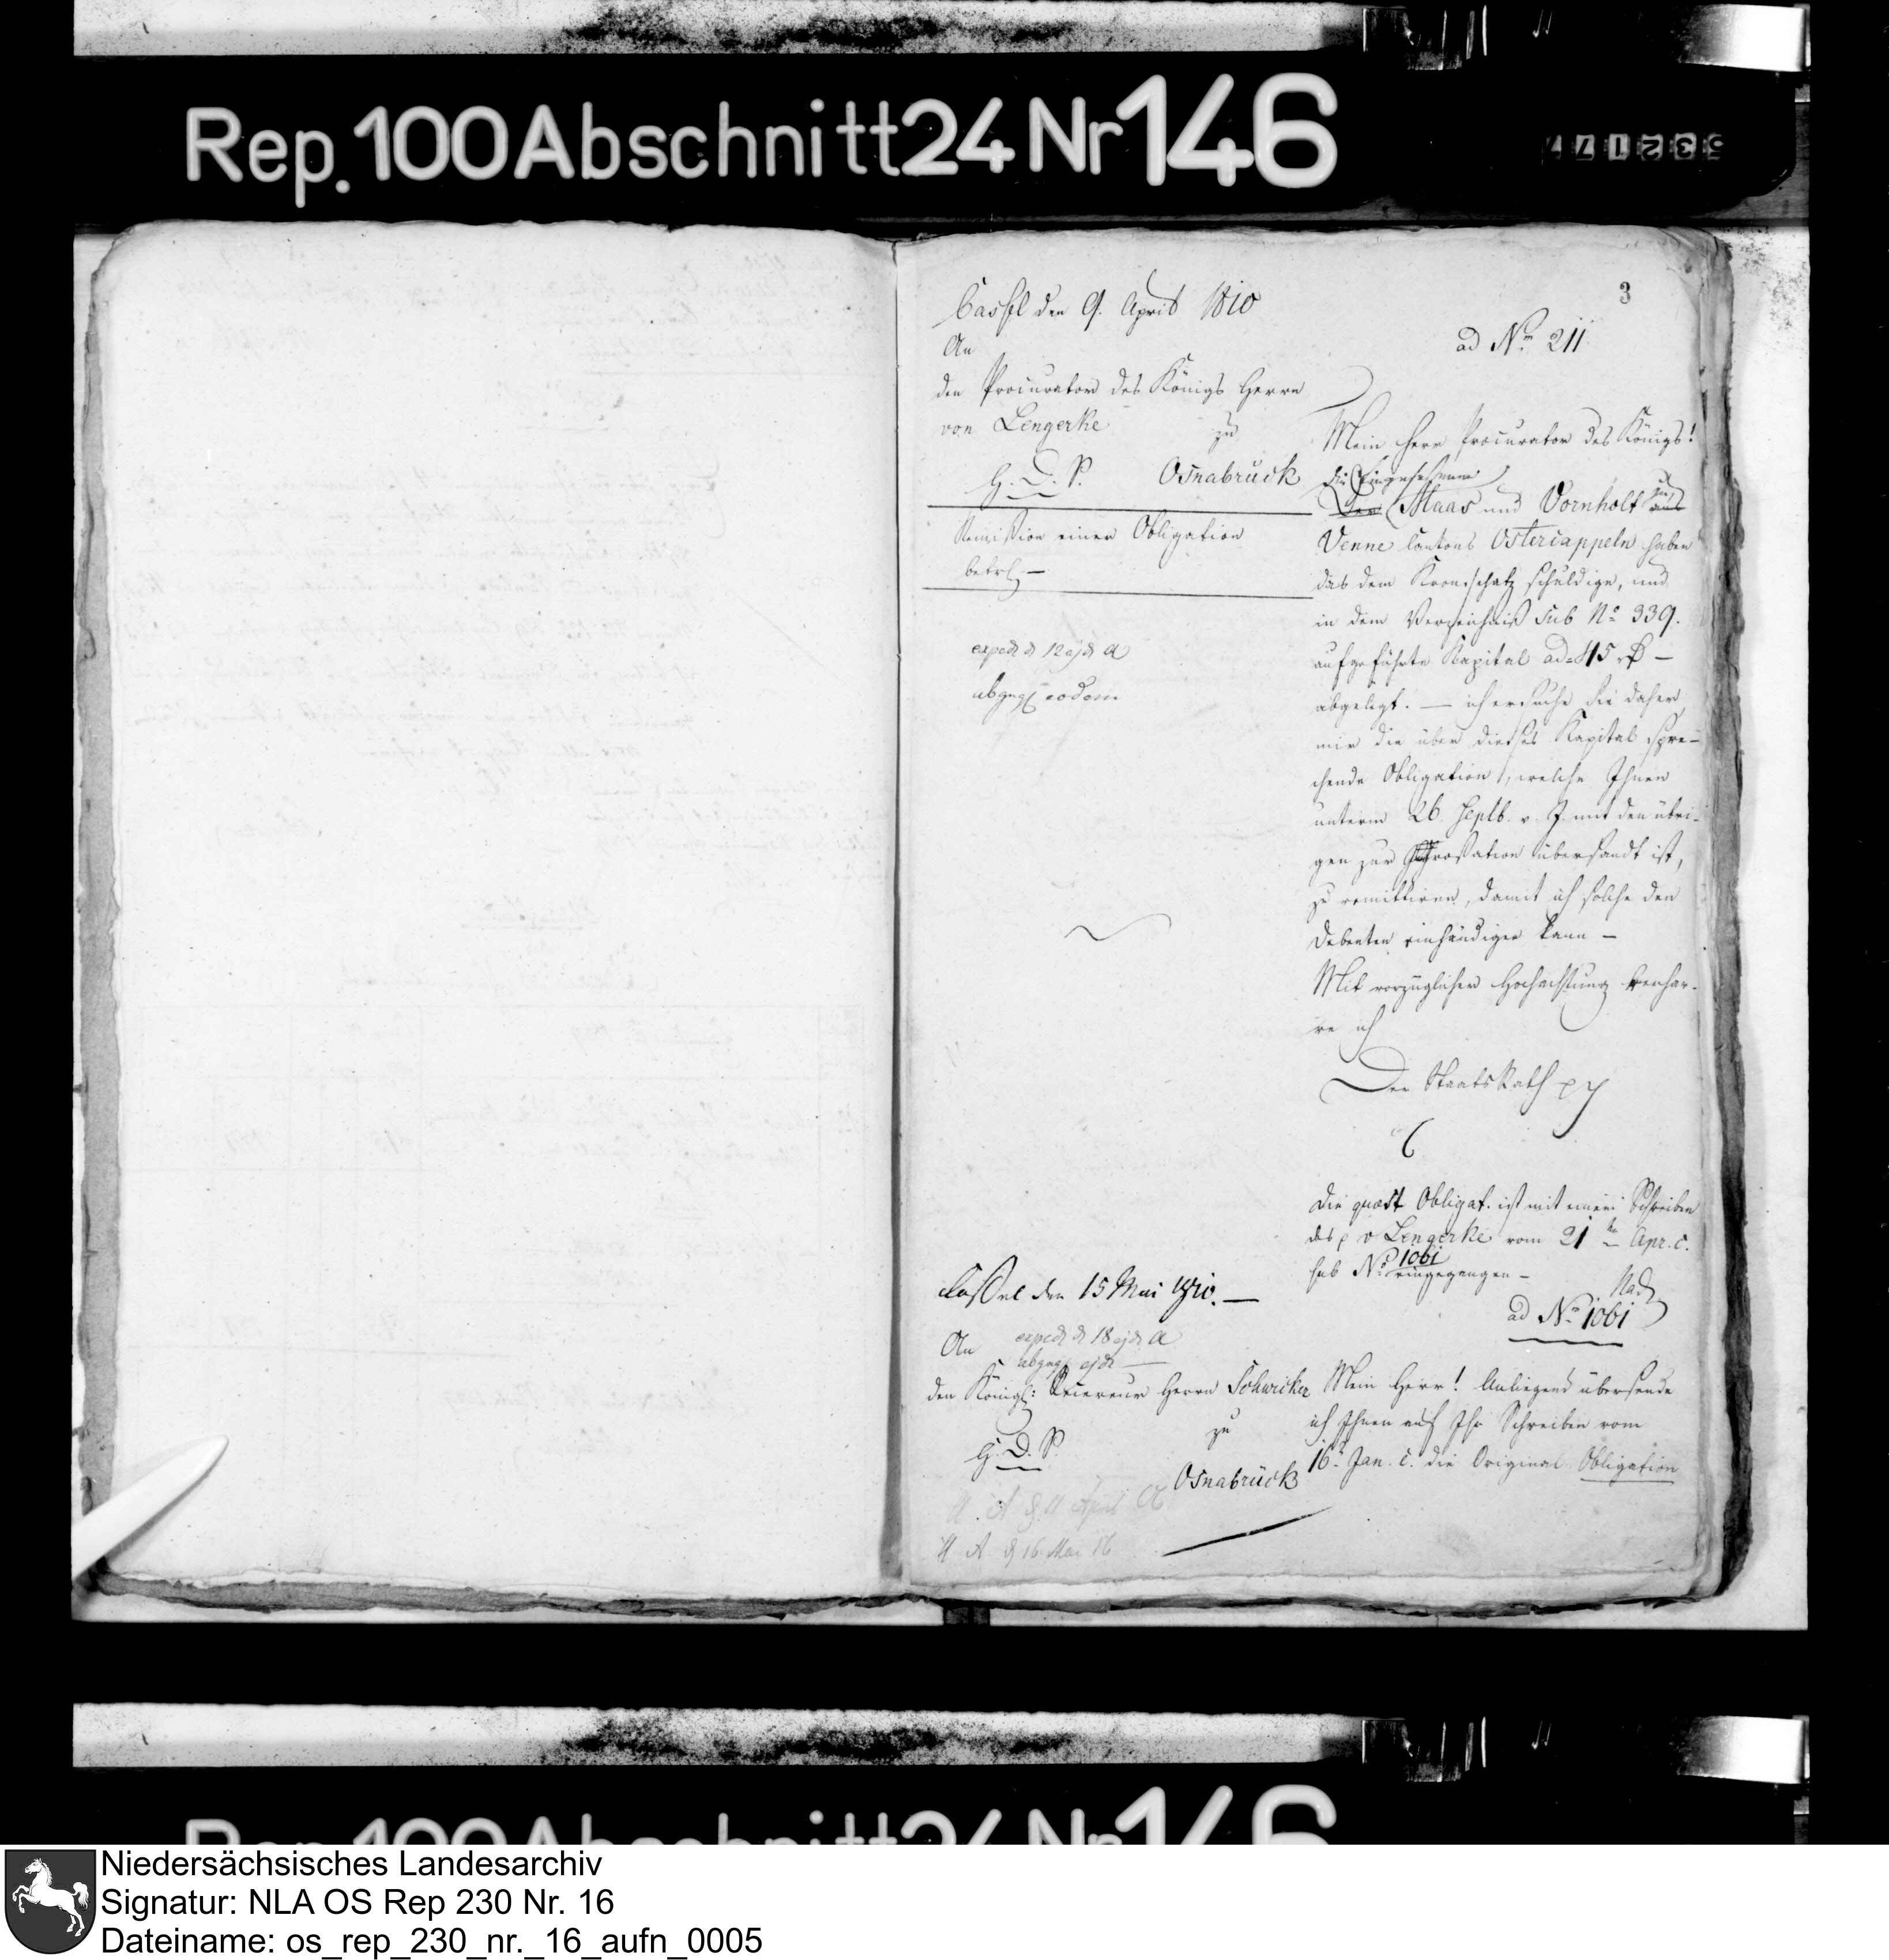 Rep. 100 Abschnitt 24 Nr 146
3
Cassel den 9. April 1810
An
den Procurator des Königs Herrn
von Lengerke
zu
H. D. P. Osnabrück
Remission einer Obligation
betr. —
exped. d 12 ejd. a
abgeg. eodem
ad Nro 211
Mein Herr Procurator des Königs!
Die Eingesessenen
Der Maas und Vornholt aus zu
Venne Cantons Ostercappeln haben
das dem Kronschatz schuldige, und
in dem Verzeichniß sub No 339.
aufgeführte Kapital ad 415 rt —
abgelegt. — ich ersuche Sie daher,
mir die über dieses Kapital spre-
chende Obligation, welche Ihnen
unterm 26 Septb. v. J. mit den übri-
gen zur übersandt ist,
zu remittiren, damit ich solche den
Debenten einhändigen kann —
Mit vorzüglicher Hochachtung verhar-
re ich
Der StaatsRath
Die quaest Obligat. ist mit einem Schreiben
des p v Lengerke vom 21ten Apr. c.
sub No 1061 eingegangen —
Cassel den 15 Mai 1810. —
An
exped. d 18 ejd. a
abgeg. ejd. —
den Königl: Receveur Herrn Schwicker
zu
H. D. P.
Osnabrück
ad Nro 1061
Mein Herr! Anliegend übersende
ich Ihnen auf Ihr Schreiben vom
16t Jan. c. die Original Obligation
Rep. 100 Abschnitt 24 Nr 146
Niedersächsisches Landesarchiv
Signatur: NLA OS Rep 230 Nr. 16
Dateiname: os_rep_230_nr._16_aufn_0005